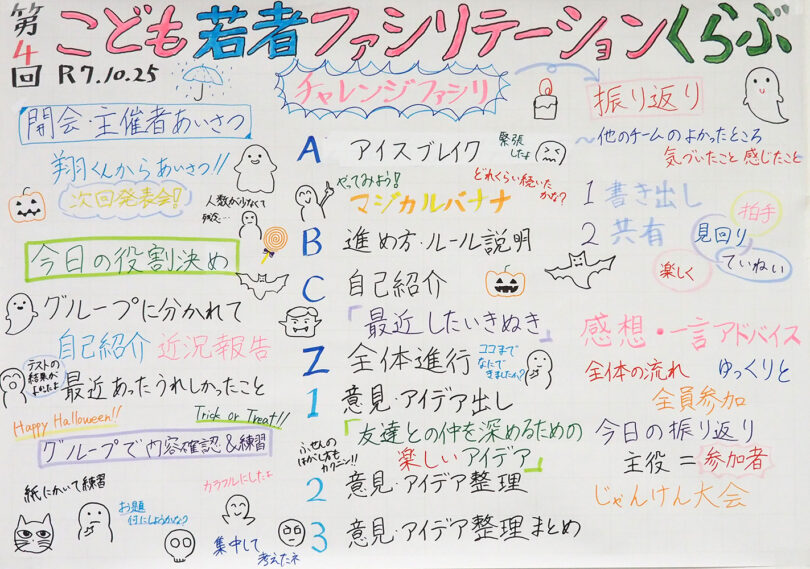 第4回
こども若者ファシリテーションくらぶ
R7.10.25
開会・主催者あいさつ
翔くんからあいさつ!!
次回発表会!
人数が少なくて
残念…
今日の役割決め
グループに分かれて
自己紹介 近況報告
テストの
結果が
よかったよ
最近あったうれしかったこと
Happy Halloween!!
Trick or Treat!!
グループで内容確認&練習
紙にかいて練習
お題
何にしようかな?
カラフルにしたよ
集中して
考えたネ
チャレンジファシリ
A アイスブレイク
緊張
したよ
やってみよう!
どれくらい続いた
かな?
マジカルバナナ
B 進め方・ルール説明
C 自己紹介
「最近したいきぬき」
Z 全体進行
ココまで
なにで
きましたか?
1 意見・アイデア出し
「友達との仲を深めるための
楽しいアイデア」
ふせんの
はがし方も
カクニン!!
2 意見・アイデア整理
3 意見・アイデア整理まとめ
振り返り
～他のチームのよかったところ
気づいたこと感じたこと
1 書き出し
2 共有
拍手
見回り
楽しく
ていねい
感想・一言アドバイス
全体の流れ ゆっくりと
全員参加
今日の振り返り
主役=参加者
じゃんけん大会